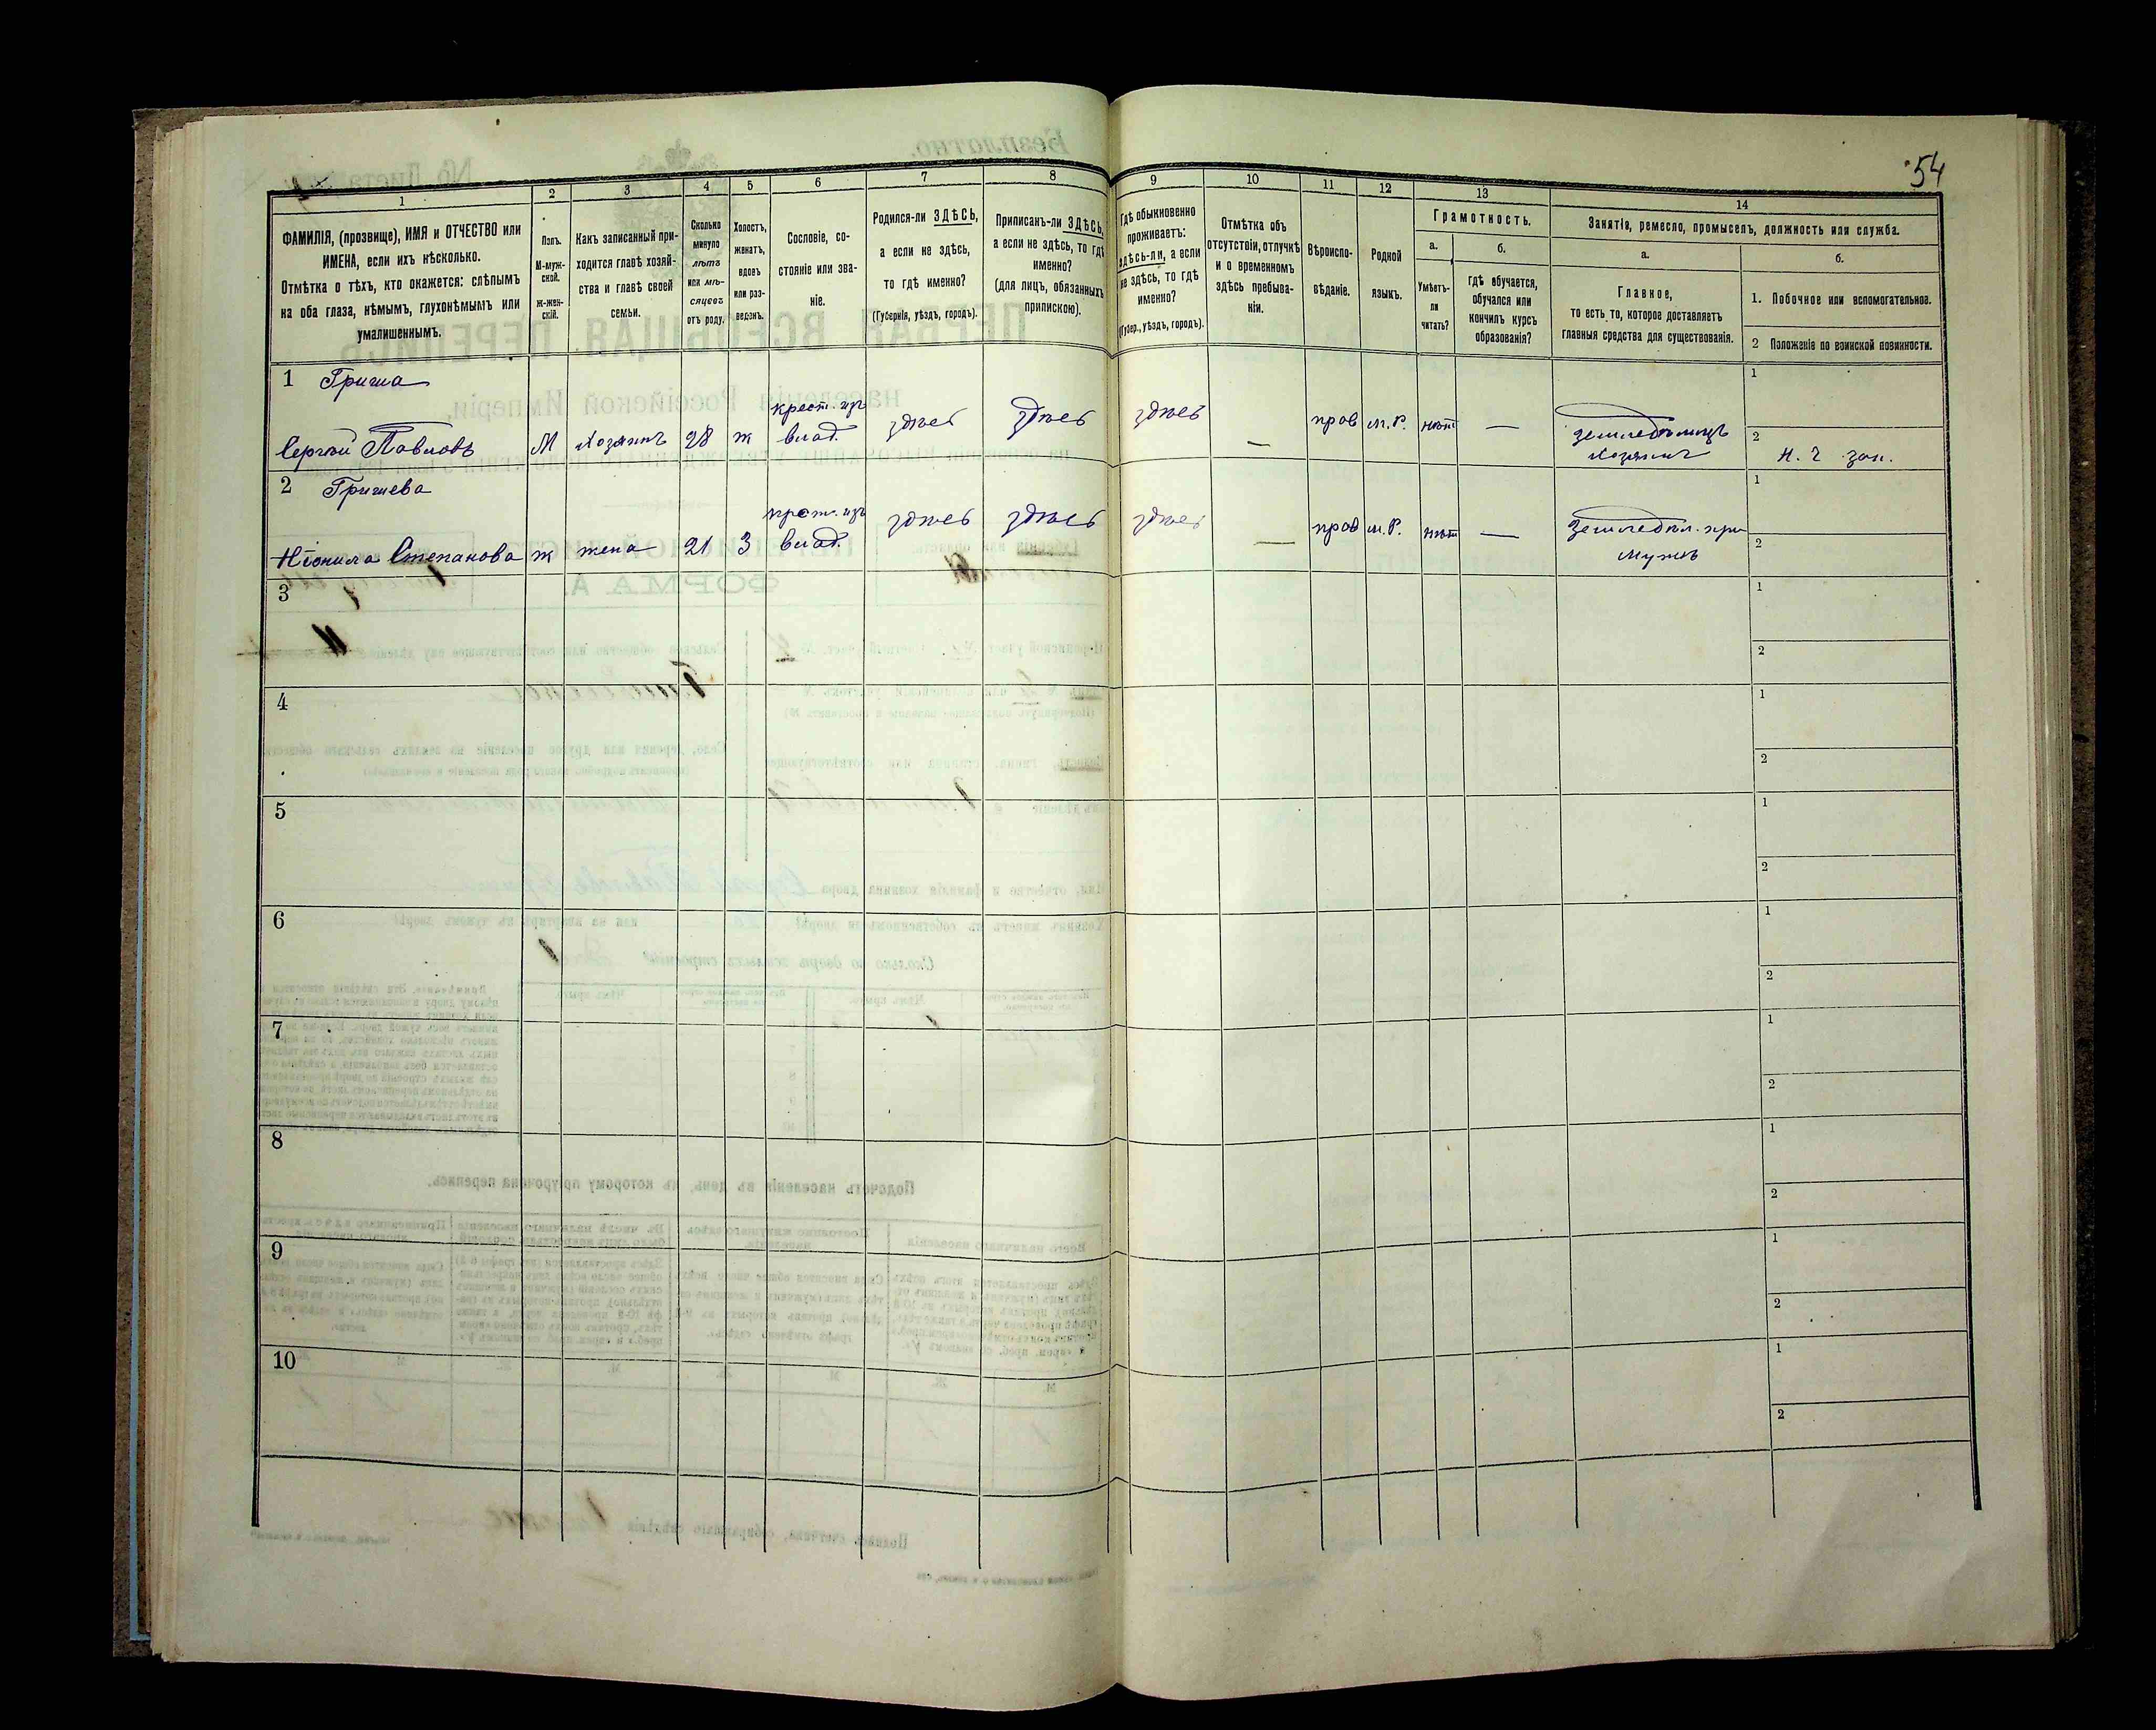 54
1 2 3 4 5 6 7 8 9 10 11 12 13 14
ФАМИЛІЯ, (прозвище), ИМЯ и ОТЧЕСТВО или
ИМЕНА, если ихъ нѣсколько.
Отмѣтка о тѣхъ, кто окажется: слѣпымъ
на оба глаза, нѣмымъ, глухонѣмымъ или
умалишеннымъ.
Полъ.
М-муж-
ской.
ж-жен-
скій.
Какъ записанный при-
ходится главѣ хозяй-
ства и главѣ своей
семьи.
Сколько
минуло
лѣтъ
или мѣ-
сяцевъ
отъ роду.
Холостъ,
женатъ,
вдовъ
или раз-
веденъ.
Сословіе, со-
стояніе или зва-
ніе.
Родился-ли ЗДѢСЬ,
а если не здѣсь,
то гдѣ именно?
(Губернія, уѣздъ, городъ).
Приписанъ-ли ЗДѢСЬ,
а если не здѣсь, то гдѣ
именно?
(для лицъ, обязанныхъ
припискою).
Гдѣ обыкновенно
проживаетъ:
здѣсь-ли, а если
не здѣсь, то гдѣ
именно?
(Губер., уѣздъ, городъ).
Отмѣтка объ
отсутствіи, отлучкѣ
и о временномъ
здѣсь пребыва-
ніи.
Вѣроиспо-
вѣданіе.
Родной
языкъ.
Грамотность.
а.
Умѣетъ-
ли
читать?
б.
гдѣ обучается,
обучался или
кончилъ курсъ
образованія?
Занятія, ремесло, промыселъ, должность или служба.
а.
Главное,
то есть то, которое доставляетъ
главныя средства для существованія.
б.
1. Побочное или вспомогательное.
2 Положеніе по воинской повинности.
1 Гриша
Сергѣй Павловъ М хозяинъ 28 ж крест. изъ влад. здѣсь здѣсь здѣсь — прав м.Р. нѣт — земледѣлецъ хозяинъ
1
2 Н. 2 зап.
2 Гришева
Неонила Степанова ж жена 21 З крест. изъ влад. здѣсь здѣсь здѣсь — прав м.Р. нѣт — Земледѣл. при мужѣ
1
2
3
1
2
4
1
2
5
1
2
6
1
2
7
1
2
8
1
2
9
1
2
10
1
2